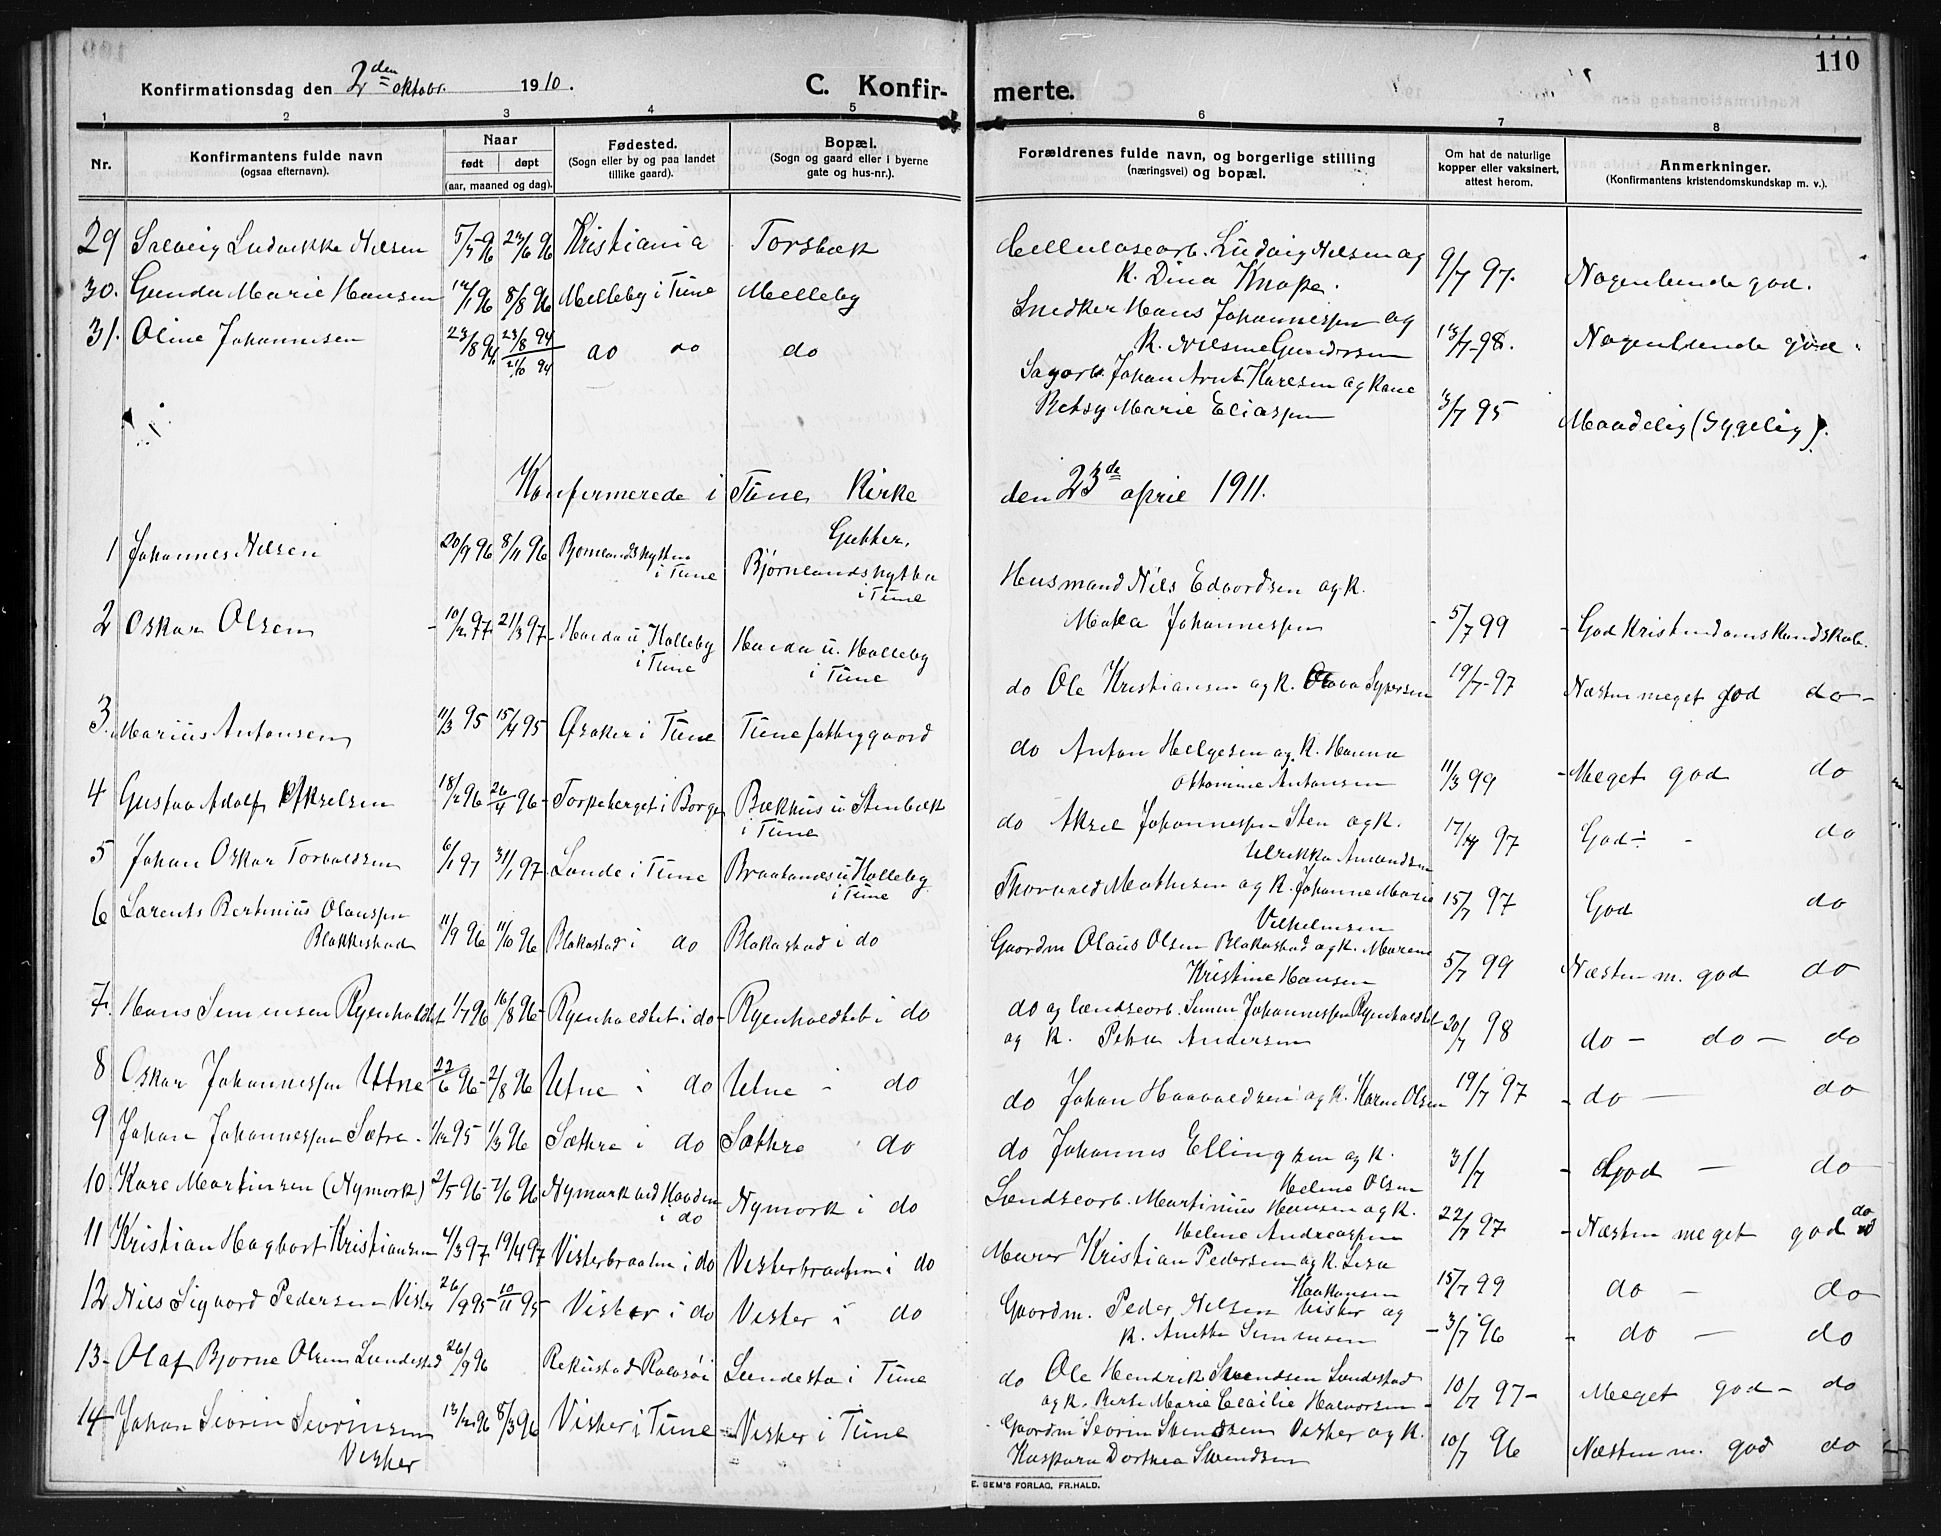 110
Konfirmationsdag den 2den oktobr. 1910.
C. Konfir-
merte.
1 2 3 4 5 6 7 8
Nr.
Konfirmantens fulde navn
(ogsaa efternavn).
Naar
født døpt
(aar, maaned og dag).
Fødested.
(Sogn eller by og paa landet
tillike gaard).
Bopæl.
(Sogn og gaard eller i byerne
gate og hus-nr.).
Forældrenes fulde navn, og borgerlige stilling
(næringsvei) og bopæl.
Om hat de naturlige
kopper eller vaksinert,
attest herom.
Anmerkninger.
(Konfirmantens kristendomskundskap m. v.).
29 Solveig Ludvikka Nilsen 5/5 96 Kristiania Torsbæk Cellulosearb. Ludvig Nilsen og
K. Dina Knape. 9/7 97. Nogenlunde god.
30. Gunda Marie Hansen 8/8 96 Melleby i Tune Melleby Snedker Hans Johannessen og
K. Nilsine Gundersen 13/7 98. Nogenlunde god.
31. Oline Johannesen 23/8 94 23/8 94 do do do Sagarb. Johan Arnt Karlsen og Kone
Betsy Marie Eliassen 13/7 95 Maadelig (Sygelig).
Konfirmerede i Tune Kirke den 23de april 1911.
1 Johannes Nilsen 20/9 96 8/11 96 Bjørnlandshytten
i Tune Gutter.
Bjørnlandshytta
i Tune Husmand Nils Edvardsen og k.
Johannessen 5/7 99 God Kristendomskundskab.
2 Oskar Olsen 10/2 97 21/3 97 Haida u Holleby
i Tune Haida u. Holleby
i Tune do Ole Kristiansen og k. 19/7 97 Næsten meget god do
3. Marius Antonsen 11/3 95 15/4 95 Øsaker i Tune Tune fattiggaard do Anton Helgesen og K. Hanna
Ottomine Antonsen 11/3 99 Meget god do
4 Gustav Adolf Akselsen 18/2 96 26/4 96 Torpeberget i Borge Bækhus u Stenbæk
i Tune do Aksel Johannessen Sten og k.
Ulrikka Amundsen 17/7 97 God do
5 Johan Oskar Torvaldsen 6/1 97 31/1 97 Lande i Tune Braatanes u Holleby
i Tune Thorvald Mathisen og K. Johanne Marie
Vilhelmsen 15/7 97 God do
6 Lorents Bertinius Olaussen
Blakkestad 11/9 96 11/10 96 Blakastad i do Blakastad i do Gaardm Olaus Olsen Blakastad og k. Maren
Kristine Hansen 5/7 99 Næsten m. god do
7. Hans Simensen Ryenholdtet 1/7 96 16/8 96 Ryenholdtet i do Ryenholdtet i do do og lændsearb. Simen Johannessen Ryenholdtet
og K. Petra Andersen 20/7 98 do do do
8 Oskar Johannessen Utne 22/6 96 2/8 96 Utne i do Utne i do do Johan Haavaldsen og k. Karen Olsen 19/7 97 do do
9 Johan Johannessen Sætre 1/12 95 1/3 96 Sæthre i do Sæthre i do do Johannes Ellingsen og k.
Helene Olsen 31/7 God do
10. Kare Martinsen (Nymork) 2/5 96 7/6 96 Nymark ved Haaden
i do Nymork i do Lændsearb. Martinius Hansen og k.
Helene Andreassen 22/7 97 Næsten meget god do
11 Kristian Hagbart Kristiansen 4/3 97 19/4 97 Visterbraaten i do Visterbraaten i do Murer Kristian Pedersen og k. Lisa
Haakonsen 15/7 99 do do
12 Nils Sigvard Pedersen Vister 26/9 95 10/11 95 Vister i do Vister i do Gaardm. Peder Nilsen Vister og
k. Anette Simensen 3/7 96 do do
13 Olaf Bjarne Olsen Lundestad 26/9 96 Rekustad Rolvsøi Lundesta i Tune do Ole Hendrik Svendsen Lundestad
og k. Berte Marie Cecilie Halvorsen 10/7 97 Meget god do
14 Johan Severin Severinsen
Vister 13/2 96 8/3 96 Vister i Tune Vister i Tune Gaardm Severin Svendsen Vister og k.
Kaspara Dorthea Svendsen 10/7 96 Næsten m. god do
E. SEM'S FORLAG, FR.HALD.